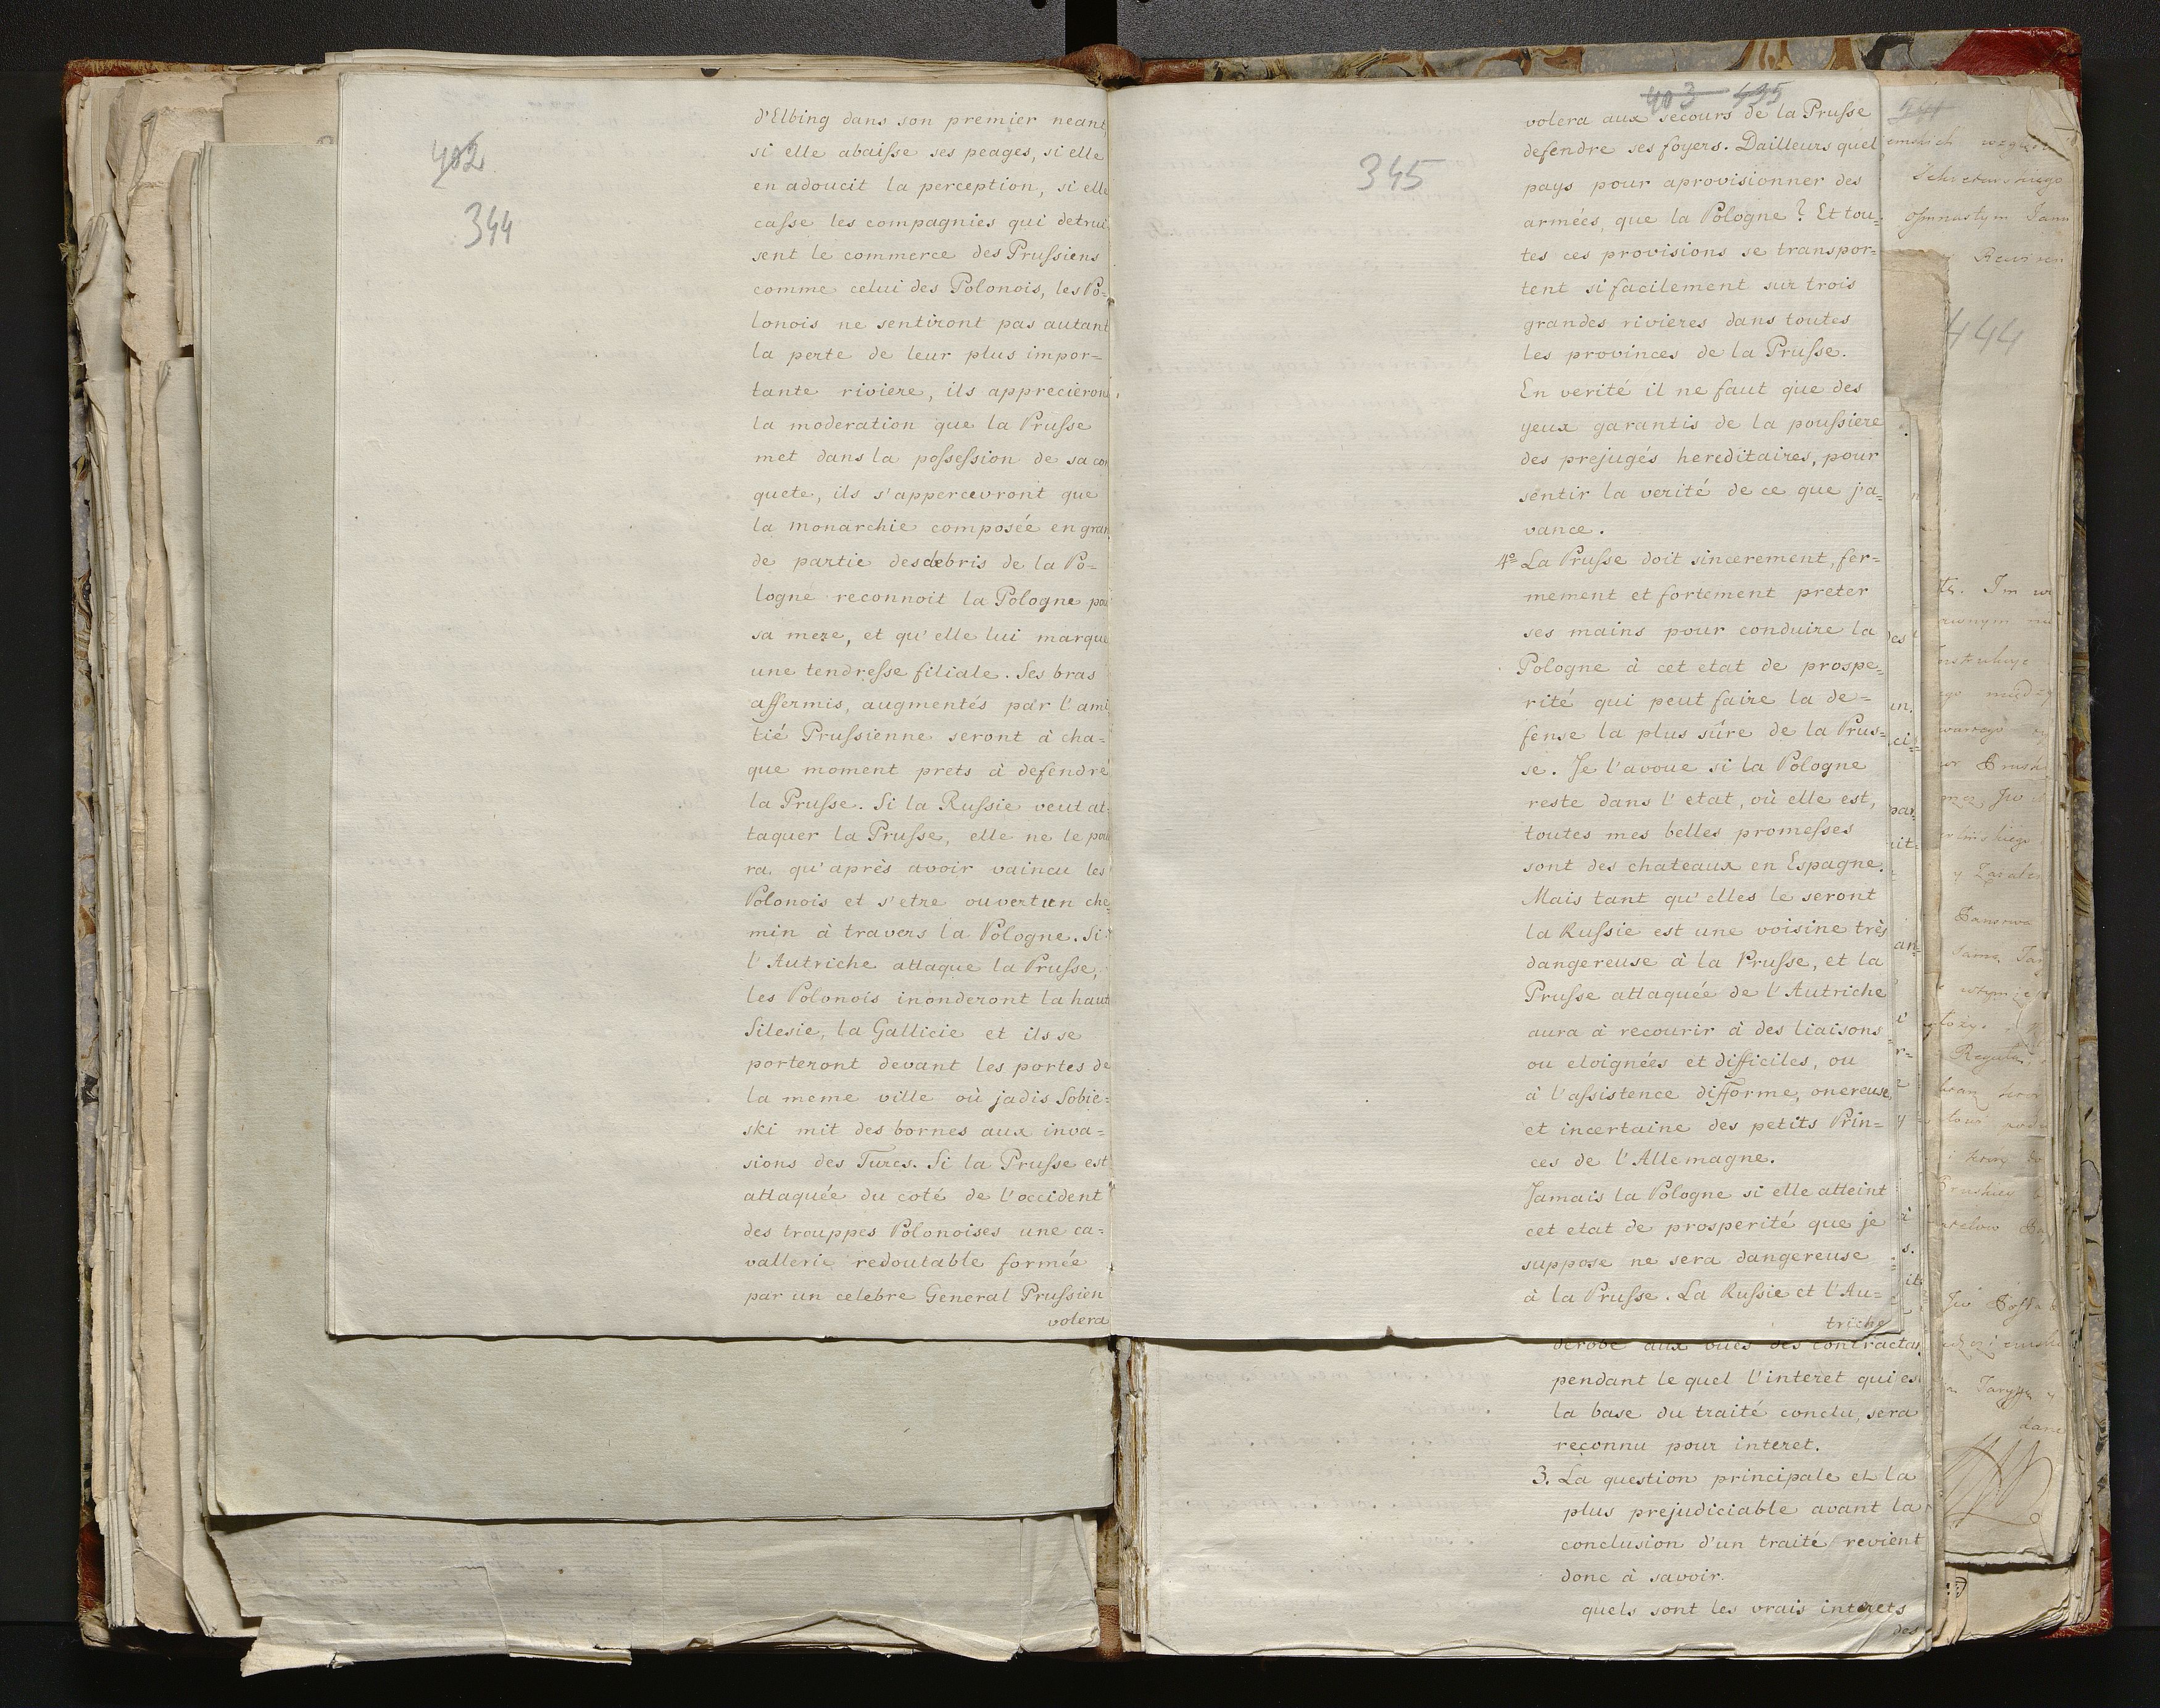 402
344
d'Elbing dans son premier neant,
si elle abaisse ses peages, si elle
en adoucit la perception, si elle
casse les compagnies qui detrui
sent le commerce des Prussiens
comme celui des Polonois, les Po=
lonois ne sentiront pas autant
la perte de leur plus impor=
tante riviere, ils apprecieron
la moderation que la Prusse
met dans la possession de sa con
quete, ils s'appercevront que
la monarchie composée en gran
de partie des debris de la Po=
logne reconnoit la Pologne pou
sa mere, et qu'elle lui marque
une tendresse filiale. Ses bras
affermis, augmentés par l'ami
tié Prussienne seront à cha=
que moment prets à defendre
la Prusse. Si la Russie veut at=
taquer la Prusse, elle ne le pou
ra qu'après avoir vaincu les
Polonois et s'etre ouvert un che=
min à travers la Pologne. Si
l'Autriche attaque la Prusse,
les Polonois inonderont la haut
Silesie, la Gallicie et ils se
porteront devant les portes de
la meme ville où jadis Sobie=
ski mit des bornes aux inva=
sions des Turcs. Si la Prusse est
attaquée du coté de l'occident
des trouppes Polonoises une ca=
vallerie redoutable formée
par un celebre General Prussien
volera
403 435
345
volera aux secours de la Prusse
defendre ses foyers. Dailleurs quel
pays pour aprovisionner des
armées, que la Pologne? Et tou=
tes ces provisions se transpor=
tent si facilement sur trois
grandes rivieres dans toutes
les provinces de la Prusse.
En verité il ne faut que des
yeux garantis de la poussiere
des prejugés hereditaires, pour
sentir la verité de ce que j'a=
vance.
4º La Prusse doit sincerement, fer=
mement et fortement preter
ses mains pour conduire la
Pologne à cet etat de prospe=
rité qui peut faire la de=
fense la plus sûre de la Prus=
se. Je l'avoue si la Pologne
reste dans l'etat, où elle est,
toutes mes belles promesses
sont des chateaux en Espagne.
Mais tant qu'elles le seront
la Russie est une voisine très
dangereuse à la Prusse, et la
Prusse attaquée de l'Autriche
aura à recourir à des liaisons
ou eloignées et difficiles, ou
à l'assistence difforme, onereuse
et incertaine des petits Prin=
ces de l'Allemagne.
Jamais la Pologne si elle atteint
cet etat de prosperité que je
suppose ne sera dangereuse
à la Prusse. La Russie et l'Au=
triche
derobe aux vues des contractas
pendant le quel l'interet qui es
la base du traité conclu, sera
reconnu pour interet.
3. La question principale et la
plus prejudiciable avant la
conclusion d'un traité revient
donc à savoir.
quels sont les vrais interets
des
444